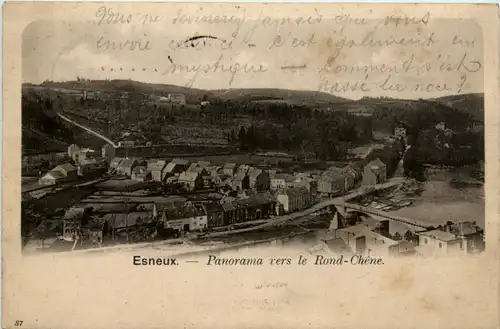 Vous ne devinerez jamais qui vous
envoie ceci — c'est également en
mystique — Comment s'est
passée la noce ?
Esneux. — Panorama vers le Rond-Chêne.
37